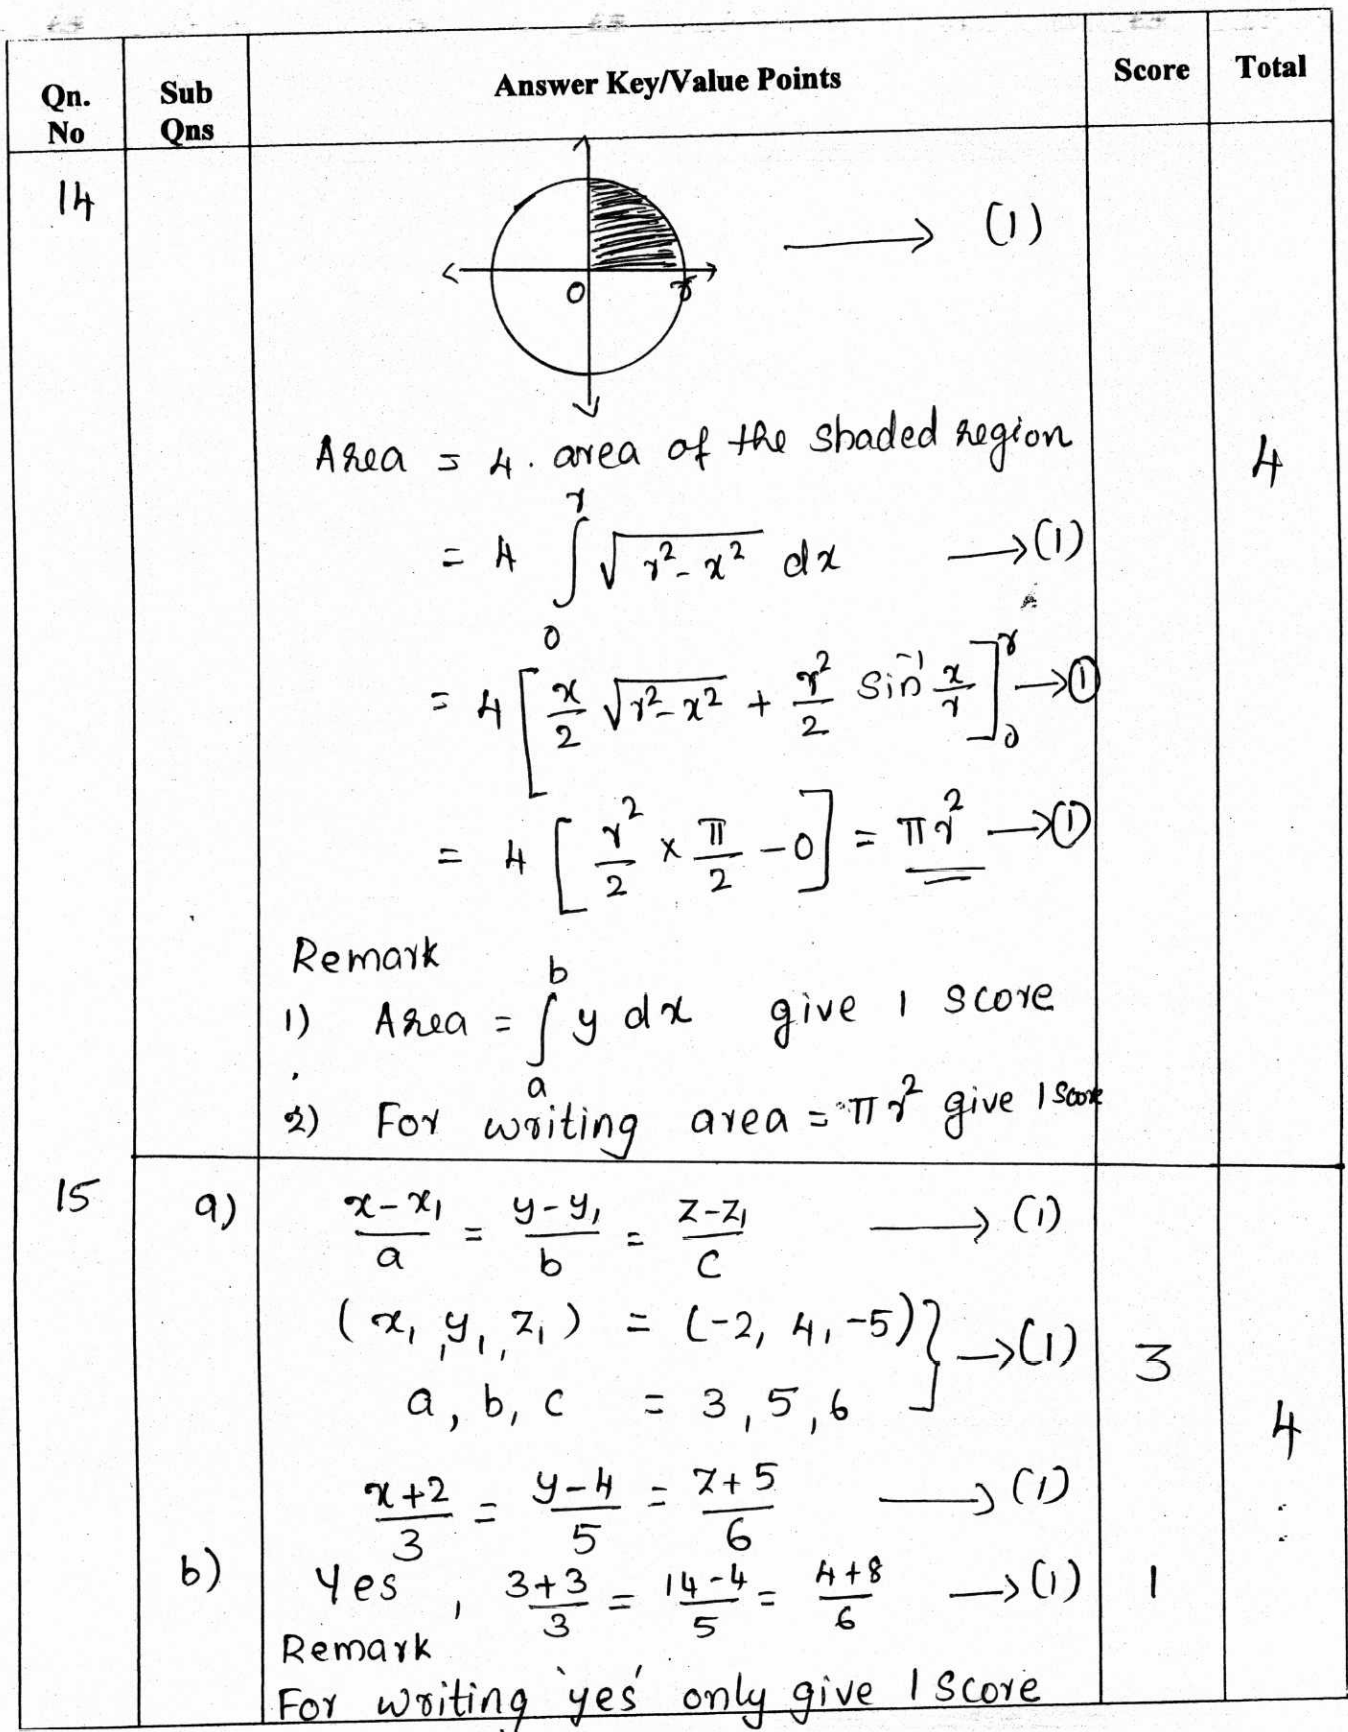 Qn. No | Sub Qns | Answer Key/Value Points | Score | Total
14
→ (1)
O r
Area = 4. area of the shaded region
4
= 4 ∫₀^r √(r²-x²) dx → (1)
= 4 [ x/2 √(r²-x²) + r²/2 sin⁻¹ x/r ]₀^r → (1)
= 4 [ r²/2 × π/2 - 0 ] = πr² → (1)
Remark
1) Area = ∫ₐ^b y dx give 1 score
2) For writing area = πr² give 1 score
15 a) (x-x₁)/a = (y-y₁)/b = (z-z₁)/c → (1)
(x₁, y₁, z₁) = (-2, 4, -5) } → (1) 3
a, b, c = 3, 5, 6
4
(x+2)/3 = (y-4)/5 = (z+5)/6 → (1)
b) Yes, (3+3)/3 = (14-4)/5 = (4+8)/6 → (1) 1
Remark
For writing 'yes' only give 1 score